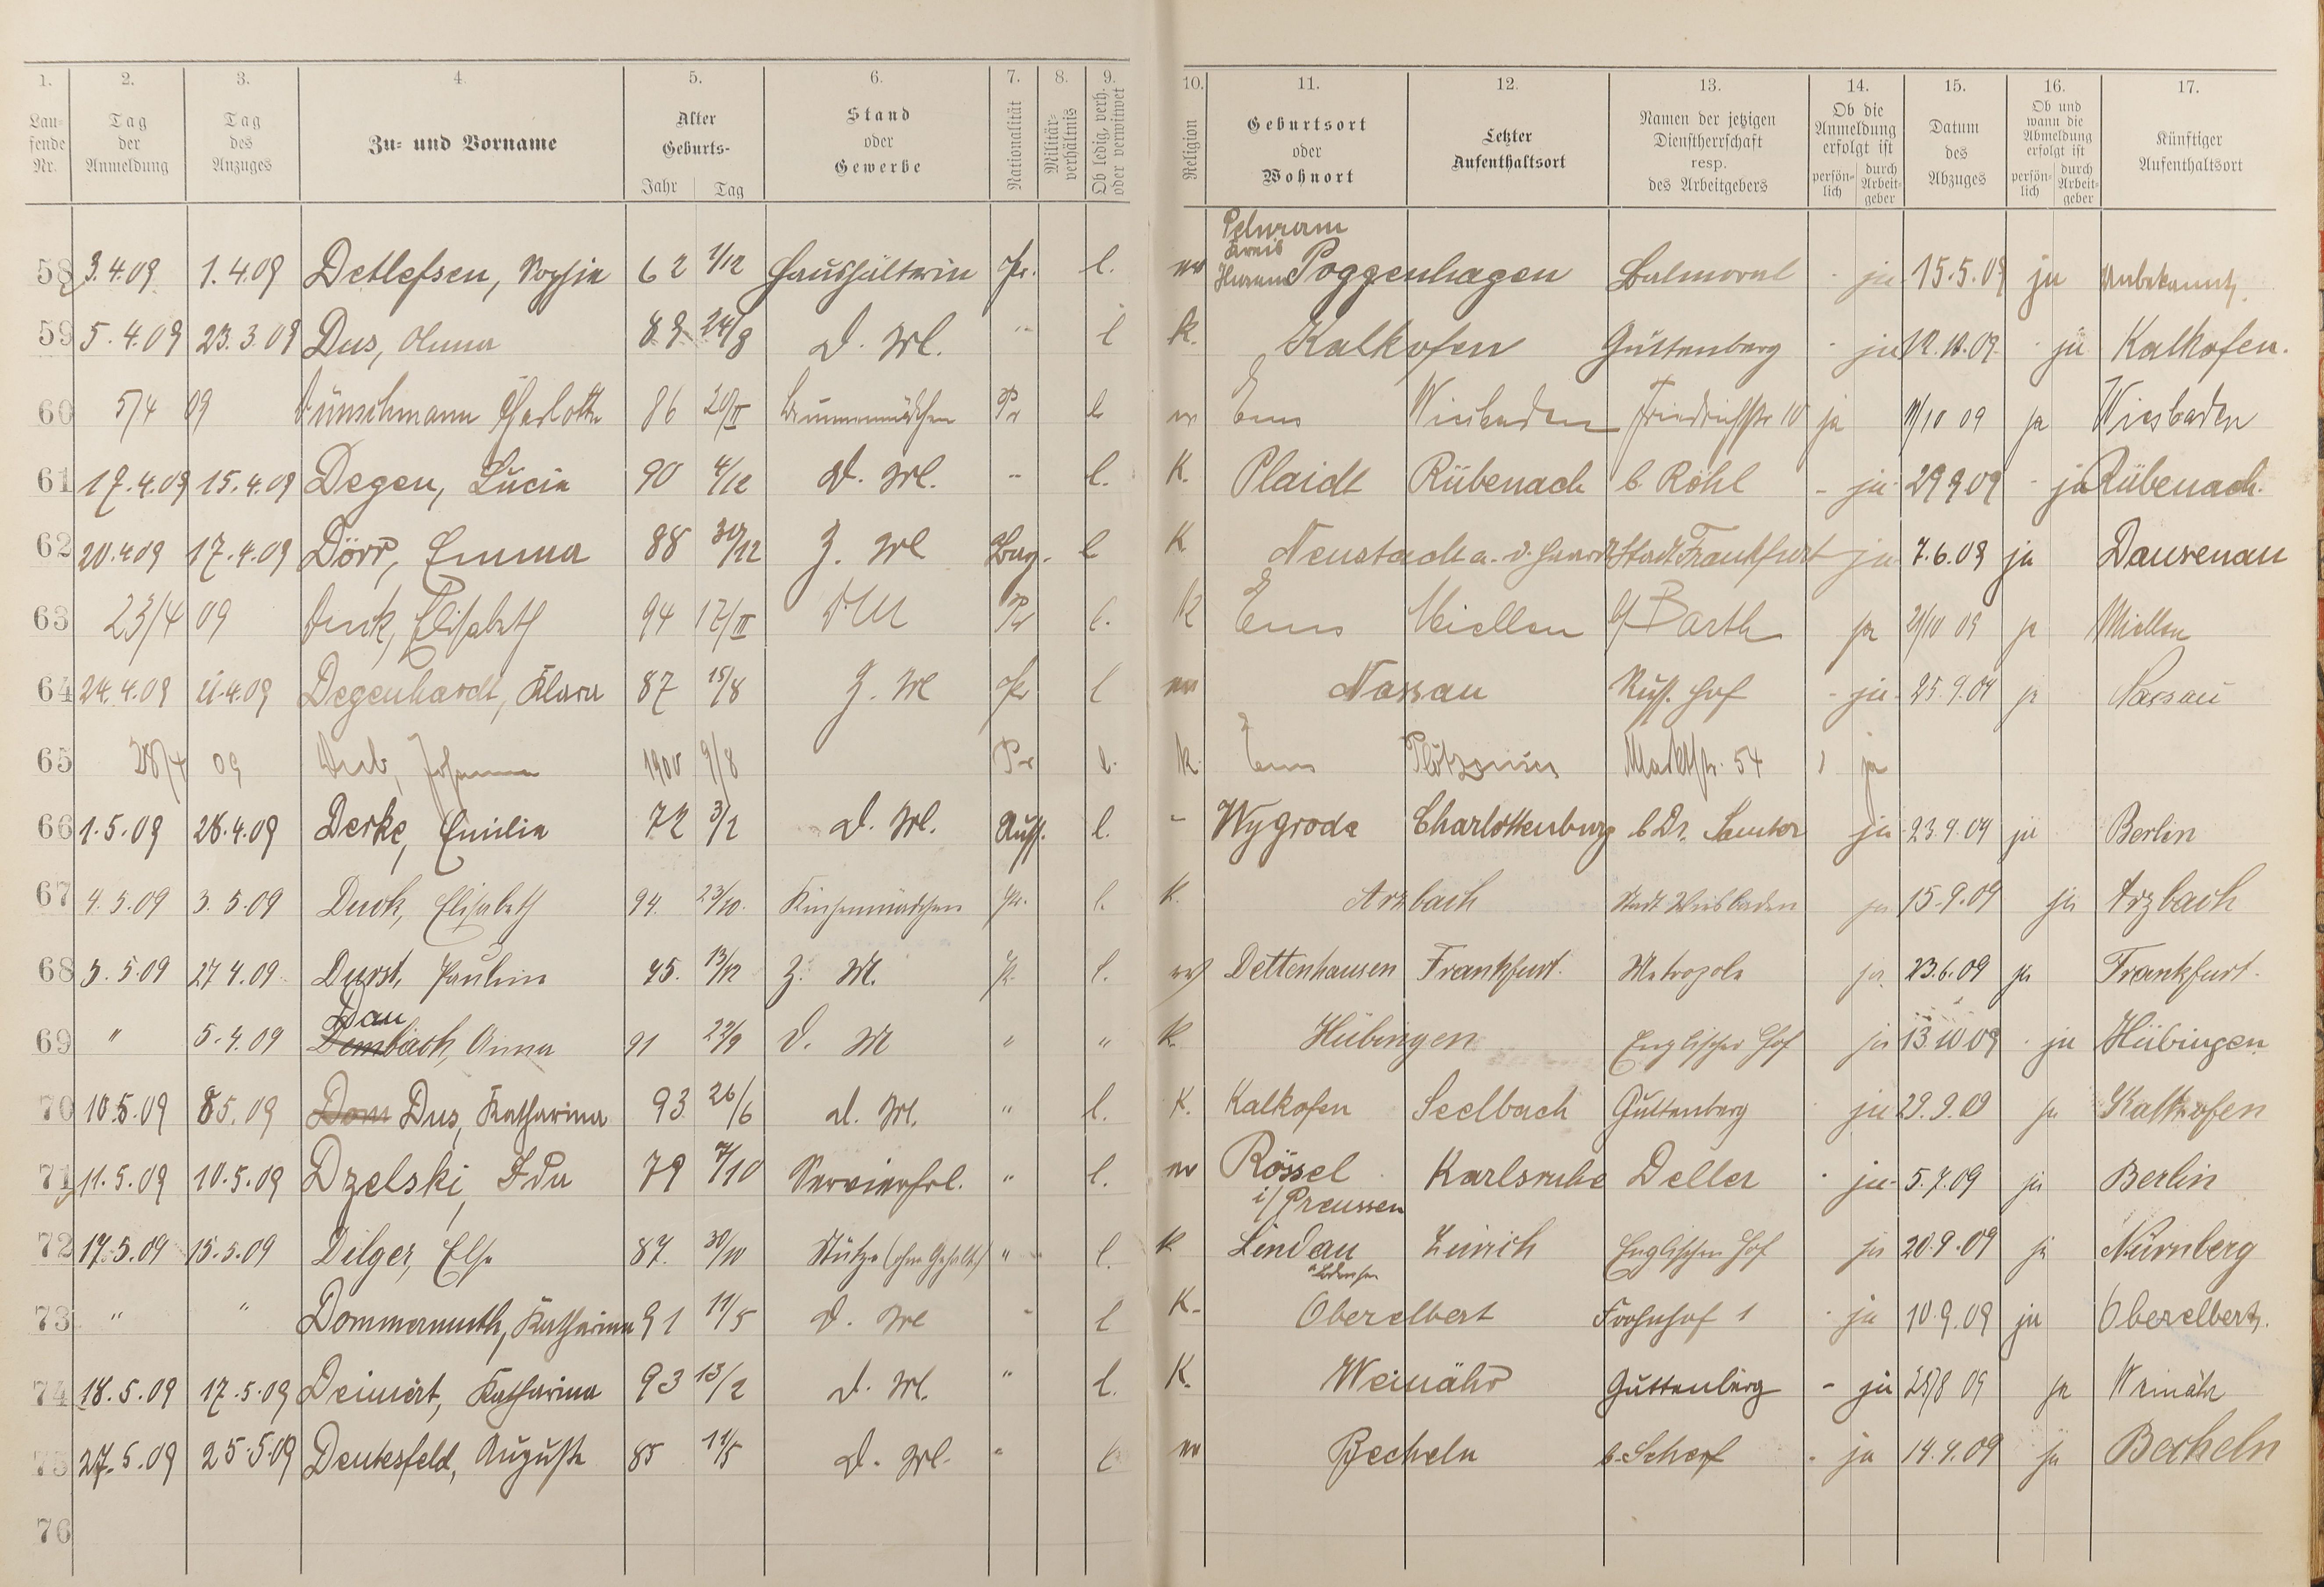 1. 2. 3. 4. 5. 6. 7. 8. 9. 10. 11. 12. 13. 14. 15. 16. 17.
Lau-
fende
Nr.
Tag
der
Anmeldung
Tag
des
Anzuges
Zu- und Vorname
Alter
Geburts-
Jahr Tag
Stand
oder
Gewerbe
Nationalität
Militär-
verhältnis
Ob ledig, verh.
oder verwitwet
Religion
Geburtsort
oder
Wohnort
Letzter
Aufenthaltsort
Namen der jetzigen
Dienstherrschaft
resp.
des Arbeitgebers
Ob die
Anmeldung
erfolgt ist
persön-
lich
durch
Arbeit-
geber
Datum
des
Abzuges
Ob und
wann die
Abmeldung
erfolgt ist
persön-
lich
durch
Arbeit-
geber
Künftiger
Aufenthaltsort
Kreis
58 3.4.09 1.4.09 Detlefsen, Sophie 62 1/12 Haushälterin Pr. l. ev Poggenhagen Balmoral - ja 15.5.09 ja Unbekannt.
59 5.4.09 23.3.09 Dus, Anna 89 24/8 D. Ml. " l K. Kalkofen Guttenberg - ja 12.10.09. - ja Kalkofen.
60 5/4 09 Dünschmann Charlotte 86 20/II Brunnenmädchen Pr l ev Ems Wiesbaden Friedrichstr 10 ja 11/10 09 ja Wiesbaden
61 17.4.09 15.4.09 Degen, Lucia 90 4/12 D. Ml. " l. K. Plaidt Rübenach b. Röhl - ja 29.9.09 - ja Rübenach.
62 20.4.09 17.4.09 Dörr, Emma 88 30/12 Z. Ml Bay. l K Neustadt a. d. Haardt Stadt Frankfurt ja 7.6.09 ja Dausenau
63 23/4 09 Elisabeth 94 12/II DM Pr l. K Ems Miellen b/ Barth ja 21/10 09 ja Miellen
64 24.4.09 21.4.09 Degenhardt, Klara 87 15/8 Z. Ml Pr l ev Nassau Russ. Hof - ja 25.9.09 ja Nassau
65 28/4 09 Johanna 1900 9/8 Pr l. K. Ems Marktstr. 54 ja
66 1.5.09 28.4.09 Derke, Emilie 72 3/2 D. Ml. Russ. l. - Wygroda Charlottenburg b Dr. Samter ja 23.9.09 ja Berlin
67 4.5.09 3.5.09 Duck, Elisabeth 94. 23/10. Küchenmädchen Pr. l. K. Arzbach Stadt Wiesbaden ja 15.9.09 ja Arzbach
68 5.5.09 27.4.09. Durst, Pauline 75. 13/12 Z. M. Pr. l. ev Dettenhausen Frankfurt. Metropole ja 23.6.09 ja Frankfurt.
Dau
69 " 5.4.09 Dembach, Anna 91 22/9 D. M " " K. Hübingen Englischer Hof ja 13.10.09 - ja Hübingen
70 10.5.09 8.5.09 Dom Dus, Katharina 93 26/6 d. Ml. " l. K. Kalkofen Seelbach Guttenberg ja 29.9.09 ja Kalkofen
71 11.5.09 10.5.09 Dzelski, Ida 79 7/10 Servierfrl. " l. ev Rössel Karlsruhe Deller - ja 5.7.09 ja Berlin
i/ Preussen
72 17.5.09 15.5.09 Dilger, Else 87. 30/10 Stütze (ohne Gehalt) " l. K Lindau Zürich Englischen Hof ja 20.9.09 ja Nürnberg
73 " " Dommermuth, Katharina 91 11/5 D. Ml " l K. Oberelbert Frohnhof 1 - ja 10.9.09 ja Oberelbert.
74 18.5.09 17.5.09 Deinert, Katharina 93 13/2 d. Ml. " l. K. Weinähr Guttenberg - ja 28/8 09 ja Weinähr
75 27.5.09 25.5.09 Deutesfeld, Auguste 85 11/5 D. Ml. " l ev Becheln b. Scherf - ja 14.9.09 ja Becheln
76